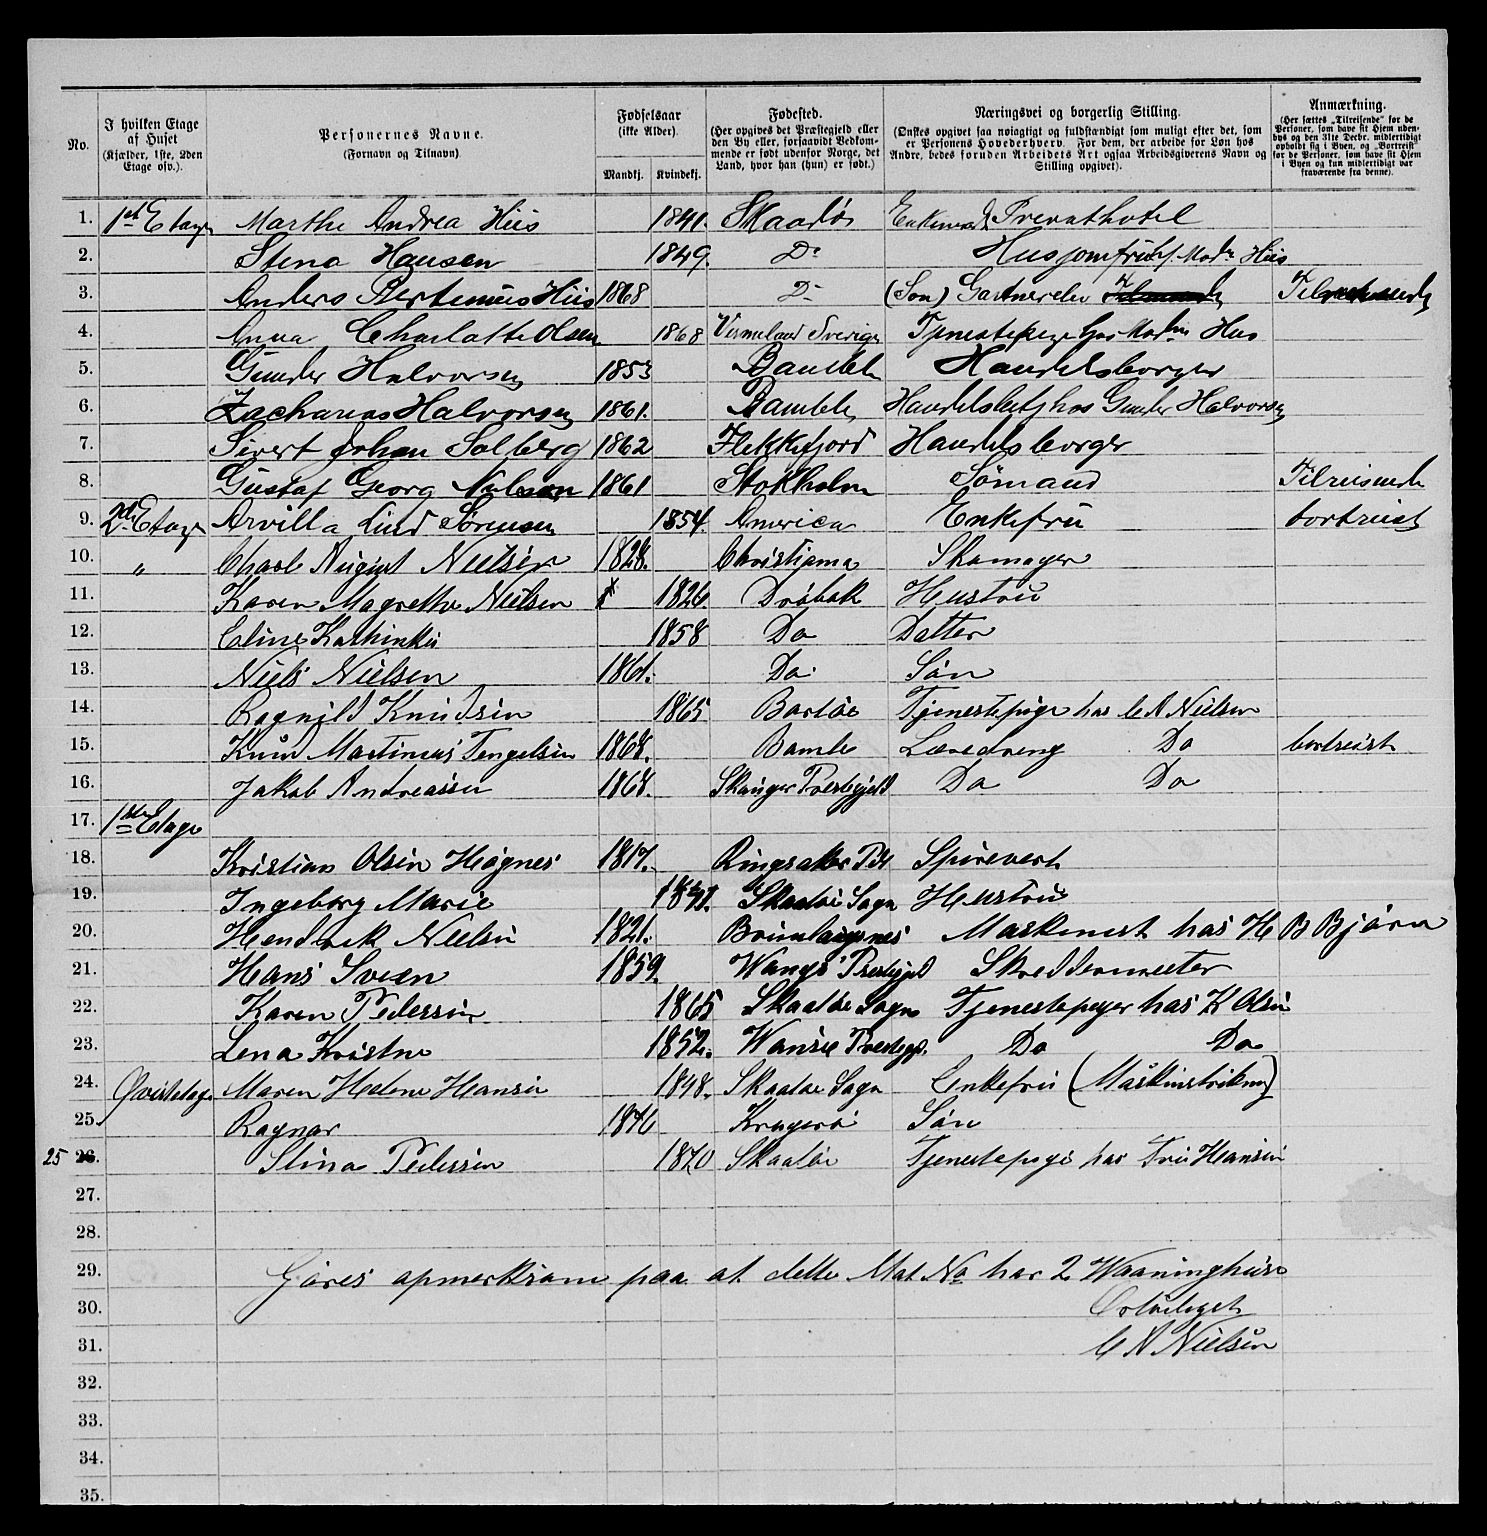 No.
I hvilken Etage af Huset
(Kjælder, 1ste, 2den Etage osv.).
Personernes Navne.
(Fornavn og Tilnavn)
Fødselsaar
(ikke Alder).
Mandkj. Kvindekj.
Fødested.
(Her opgives det Præstegjeld eller
den By eller, forsaavidt Vedkom-
mende er født udenfor Norge, det
Land, hvor han (hun) er født.)
Næringsvei og borgerlig Stilling.
(Ønskes opgivet saa nøiagtigt og fuldstændigt som muligt efter det, som
er Personens Hovederhverv. For dem, der arbeide for Løn hos
Andre, bedes foruden Arbeidets Art ogsaa Arbeidsgiverens Navn og
Stilling opgivet).
Anmærkning.
(Her sættes „Tilreisende" for de
Personer, som have sit Hjem uden-
bys og den 31te Decbr. midlertidigt
opholdt sig i Byen, og „Bortreist"
for de Personer, som have sit Hjem
i Byen og kun midlertidigt var
fraværende fra denne).
1. 1st Etage Marthe Andrea Hiis 1841. Skaadø Privathotel
2. Stina Hansen 1849. Do Husjomfru Mad. Hiis
3. Anders Bertinius Hiis 1868 Do (Søn) Gartnerelev Tilreisende
4. Anna Charlotte Olsen 1868 Vermeland Sverige Tjenestepige hos Madm Hiis
5. Gunder Halvorsen 1853 Bamble Handelsborger
6. Zacharias Halvorsen 1861. Bamble Handelsbetj hos Gunder Halvorsen
7. Sivert Johan Solberg 1862 Flekkefjord Handelsborger
8. Gustaf Georg Nilsson 1861 Stokholm Sømand Tilreisende
9. 2d Etage Arvilla Lind Sørensen 1854. America Enkefru bortreist
10. „ Charl August Nielsen 1828. Christjania Skomager
11. Karen Magrethe Nielsen 1826. Drøbak Hustru
12. Eline Kathinka 1858 Do Datter
13. Niels Nielsen 1861. Do Søn
14. Ragnild Knudsin 1865 Tjenestepige hos C A Nielsen
15. Knud Martinius Tengelsen 1868. Bamble Læredreng Do bortreist
16. Jakob Andreassen 1868. Do Do
17. 1ste Etage
18. Kristian Olsin Høgnes 1817. Ringsaker Pst
19. Ingeborg Marie Skaadøi Sogn Hustru
20. Hendrek Nielsen 1821. Brunlangnes Maskenist hos H B Bjørn
21. Hans Sveen 1859. Wangs Prestegjeld Skreddermester
22. Karen Pedersin 1865 Skaadøe Sogn Tjenestepeger hos K Olsin
23. Lena Kristine 1852. Do Do
24. Qvistetage Maren Helene Hansen 1848. Skaadøe Sogn Enkefru
25. Ragnar 1876 Kragerø Søn
25 26. Stina Pedersen 1870 Skaadøe Tjenestepige hos Fru Hansin
27.
28.
29. Gøres opmerksom paa at dette Mat No har 2 Waaninghuse
30.
31. C A Nielsen
32.
33.
34.
35.